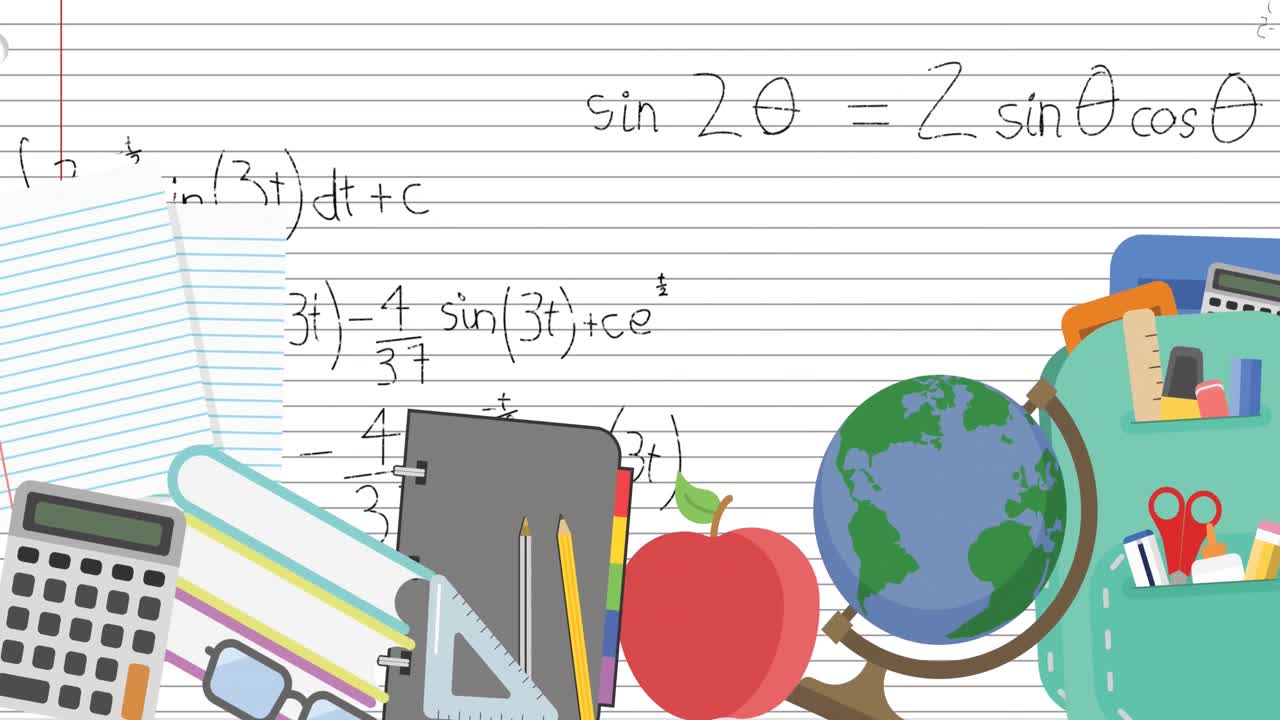 sin 2θ = 2 sinθ cosθ
in(3t)dt+c
3t) - 4/37 sin(3t)+ce^(t/2)
- 4
3t)